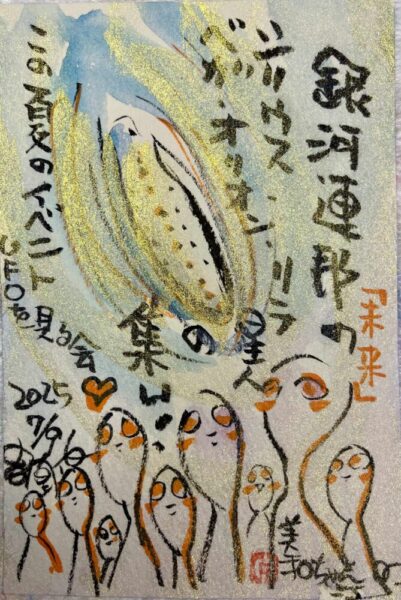 銀河連邦の
「未来」
シリウス、リラ
ベガ・オリオン
星人
の
集い
この夏のイベント
UFOを見る会
2025
7/6